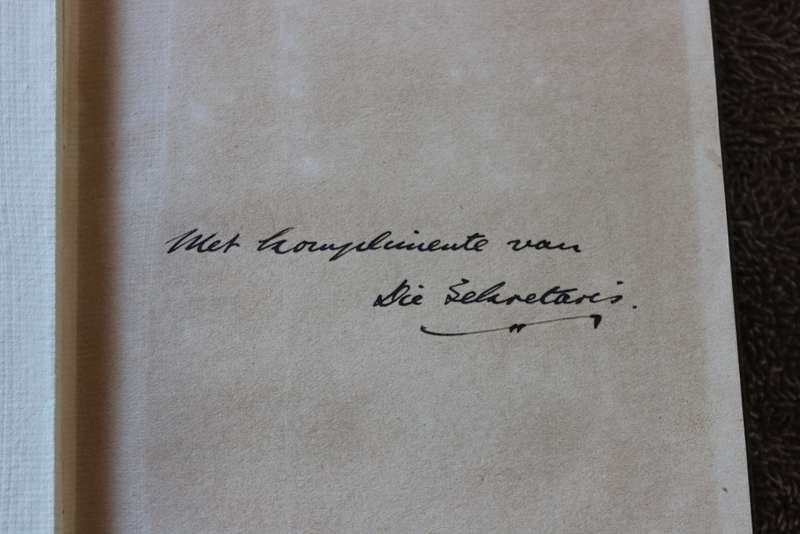 Met komplimente van
Die Sekretaris.